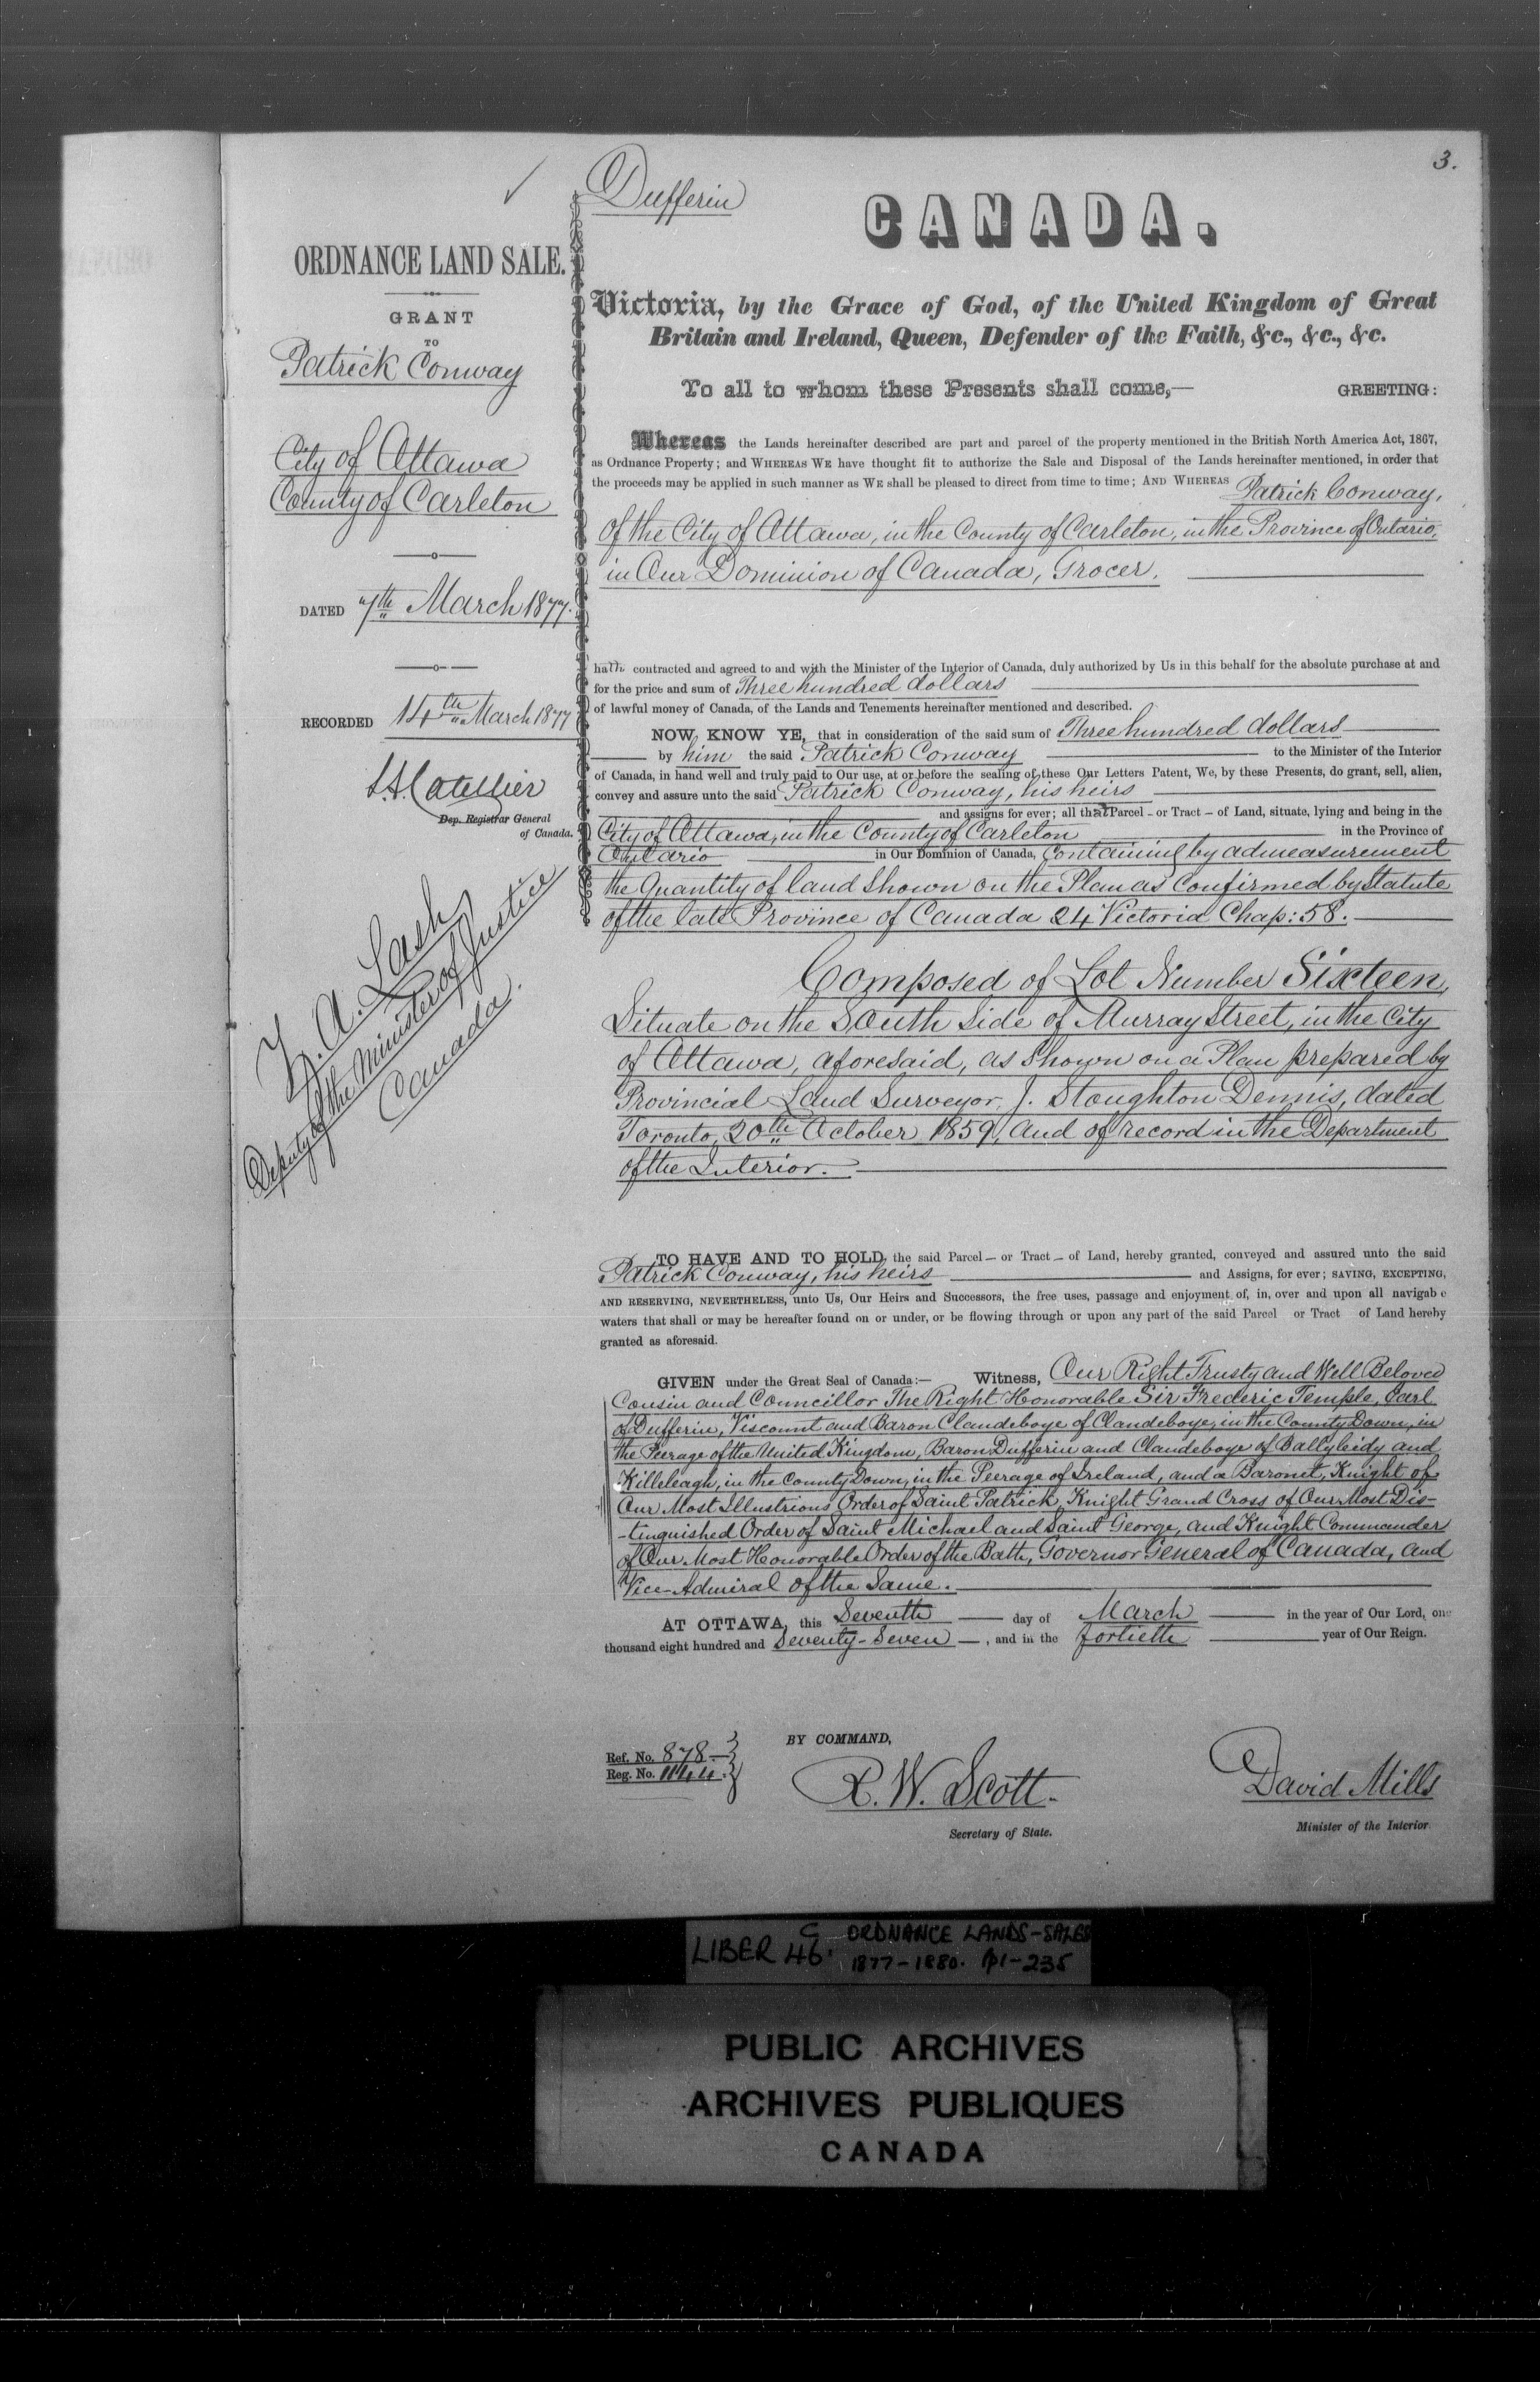 3.
Dufferin
CANADA.
ORDNANCE LAND SALE.
GRANT
TO
Patrick Conway
City of Ottawa
County of Carleton
DATED 7th March 1877.
RECORDED 14th March 1877
Dep. Registrar General
of Canada.
Z. A. Lash
Deputy of the Minister of Justice
Canada.
Victoria, by the Grace of God, of the United Kingdom of Great
Britain and Ireland, Queen, Defender of the Faith, &c., &c., &c.
To all to whom these Presents shall come,— GREETING:
Whereas the Lands hereinafter described are part and parcel of the property mentioned in the British North America Act, 1867,
as Ordnance Property; and WHEREAS WE have thought fit to authorize the Sale and Disposal of the Lands hereinafter mentioned, in order that
the proceeds may be applied in such manner as WE shall be pleased to direct from time to time; AND WHEREAS Patrick Conway,
of the City of Ottawa, in the County of Carleton, in the Province of Ontario,
in Our Dominion of Canada, Grocer.
hath contracted and agreed to and with the Minister of the Interior of Canada, duly authorized by Us in this behalf for the absolute purchase at and
for the price and sum of Three hundred dollars
of lawful money of Canada, of the Lands and Tenements hereinafter mentioned and described.
NOW KNOW YE, that in consideration of the said sum of Three hundred dollars
by him the said Patrick Conway to the Minister of the Interior
of Canada, in hand well and truly paid to Our use, at or before the sealing of these Our Letters Patent, We, by these Presents, do grant, sell, alien,
convey and assure unto the said Patrick Conway, his heirs
and assigns for ever; all that Parcel - or Tract - of Land, situate, lying and being in the
City of Ottawa, in the County of Carleton in the Province of
Ontario in Our Dominion of Canada, Containing by admeasurement
the Quantity of land shown on the Plan as Confirmed by Statute
of the late Province of Canada 24 Victoria Chap: 58.
Composed of Lot Number Sixteen,
Situate on the South Side of Murray Street, in the City
of Ottawa, aforesaid, as shown on a Plan prepared by
Provincial Land Surveyor, J. Stoughton Dennis, dated
Toronto, 20th October 1859, and of record in the Department
of the Interior.
TO HAVE AND TO HOLD, the said Parcel - or Tract - of Land, hereby granted, conveyed and assured unto the said
Patrick Conway, his heirs and Assigns, for ever; SAVING, EXCEPTING,
AND RESERVING, NEVERTHELESS, unto Us, Our Heirs and Successors, the free uses, passage and enjoyment of, in, over and upon all navigab e
waters that shall or may be hereafter found on or under, or be flowing through or upon any part of the said Parcel or Tract of Land hereby
granted as aforesaid.
GIVEN under the Great Seal of Canada:— Witness, Our Right Trusty and Well Beloved
Cousin and Councillor The Right Honorable Sir Frederic Temple, Earl
of Dufferin, Viscount and Baron Clandeboye of Clandeboye, in the County Down, in
the Peerage of the United Kingdom, Baron Dufferin and Clandeboye of Ballyleidy and
Killeleagh, in the County Down, in the Peerage of Ireland, and a Baronet, Knight of
Our Most Illustrious Order of Saint Patrick, Knight Grand Cross of Our Most Dis-
-tinguished Order of Saint Michael and Saint George, and Knight Commander
of Our Most Honorable Order of the Bath, Governor General of Canada, and
Vice-Admiral of the Same.
AT OTTAWA, this Seventh day of March in the year of Our Lord, one
thousand eight hundred and Seventy-Seven, and in the fortieth year of Our Reign.
Ref. No. 878
Reg. No. 1144.
BY COMMAND,
R. W. Scott.
Secretary of State.
David Mills
Minister of the Interior
LIBER 46. C ORDNANCE LANDS-SALES
1877-1880. p1-235
PUBLIC ARCHIVES
ARCHIVES PUBLIQUES
CANADA